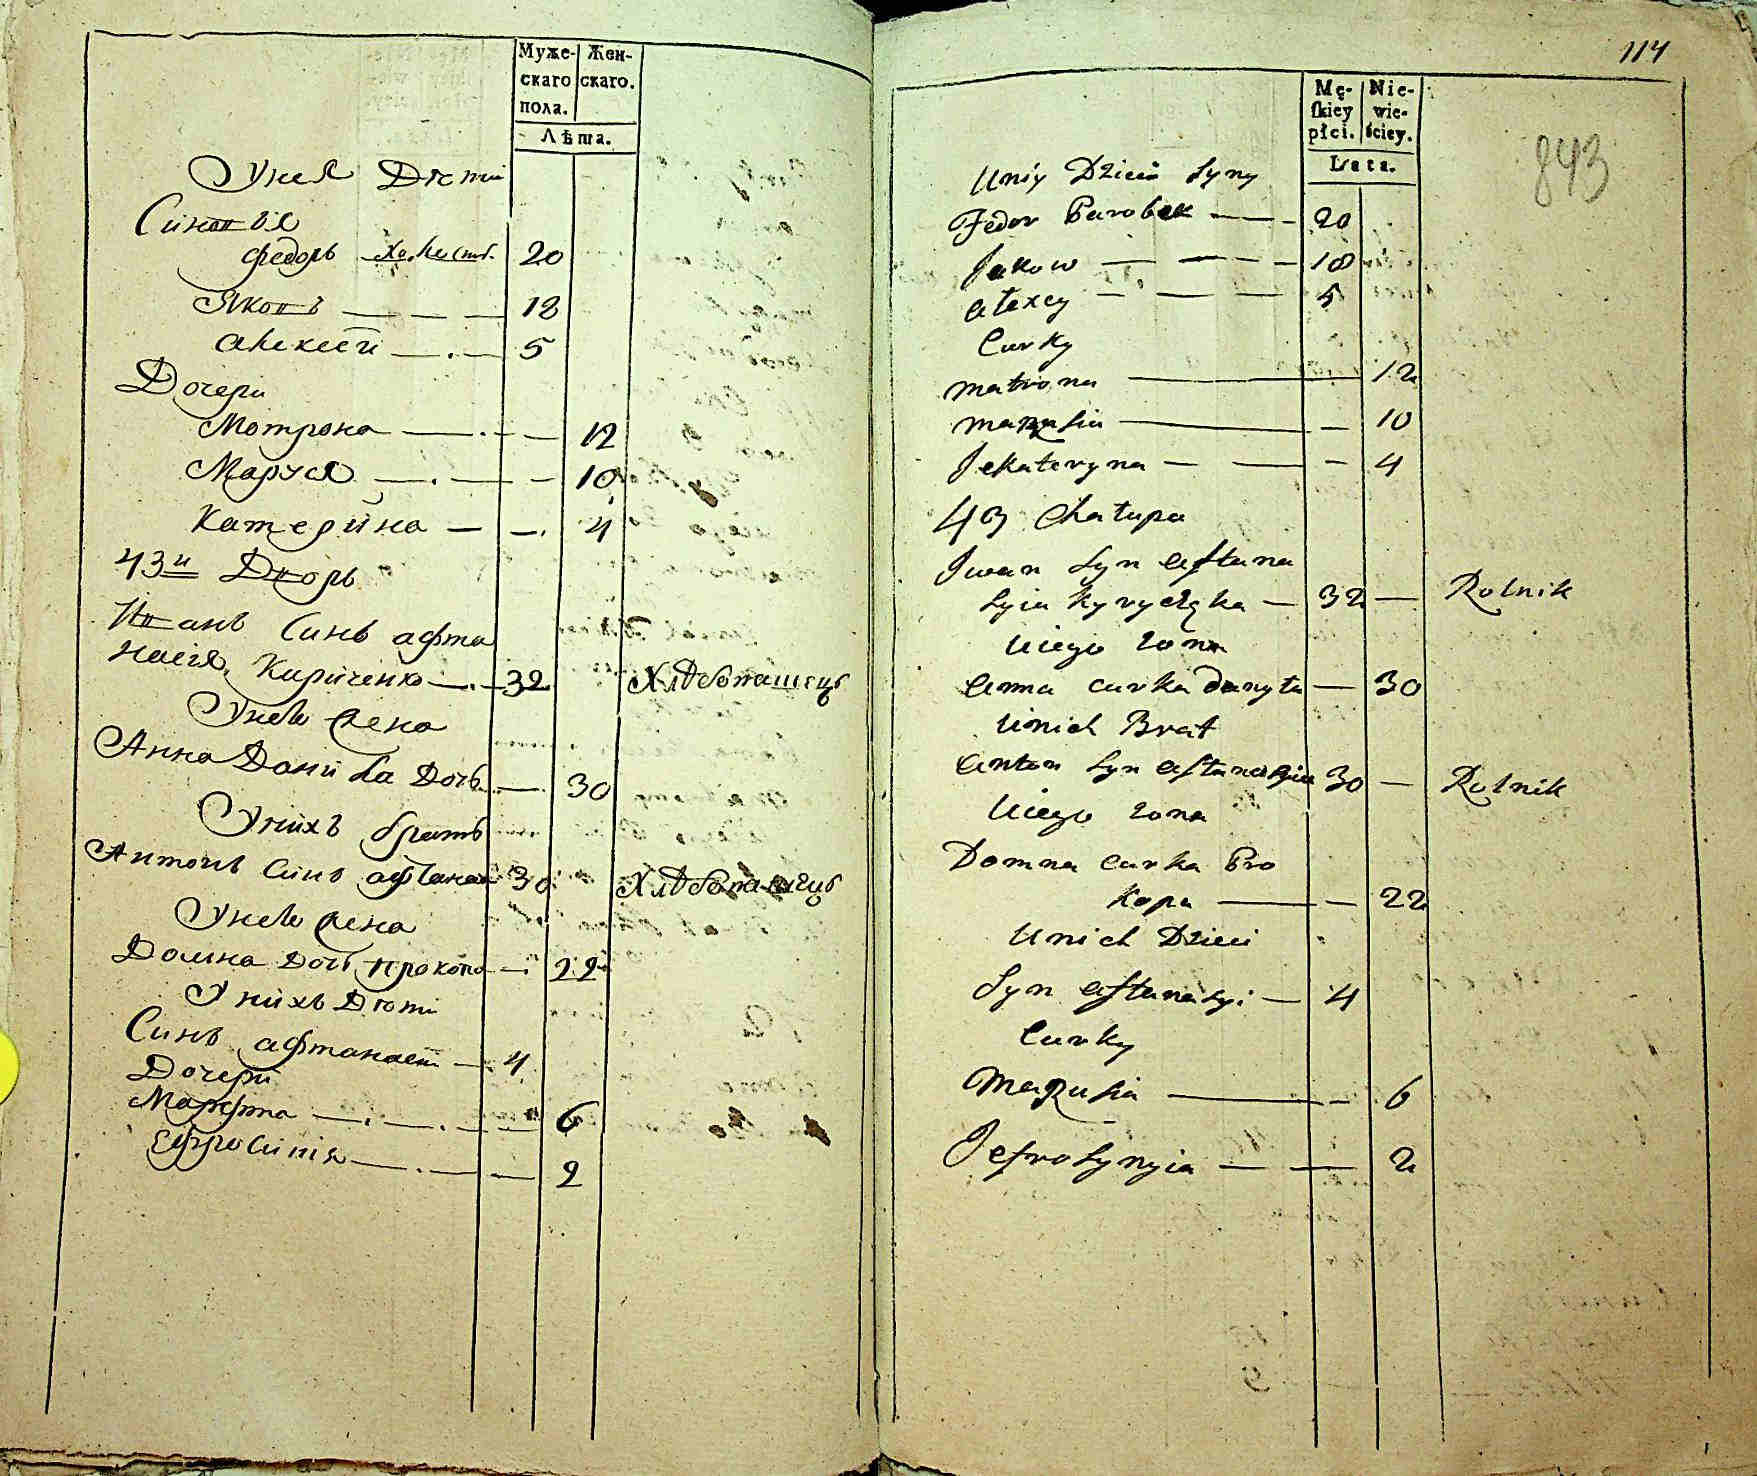 Муже-
скаго
пола.
Жен-
скаго.
Лѣта.
Унея Дѣти
Синовя
Федоръ Холост. 20
Яковъ — — — 18
Алексей — . — 5
Дочери
Мотрона — . — 12
Маруся — . — 10
Катерина — — . 4
43й Дворъ
Иванъ Синъ Афта
насия Кириченко — . — 32 Хлѣбопашецъ
Унего жена
Анна Данила Дочь — 30
Унихъ братъ
Антонъ Синъ Афтанас 30 Хлѣбопашецъ
Унего жена
Домна Дочь Прокопа — . 22
Унихъ Дѣти
Синъ Афтанасий — 4
Дочери
Марфта — . — . — 6
Ефросиния — . — — 2
114
843
Mę-
skiey
płci.
Nie-
wie-
ściey.
Lata.
Uniy Dzieci Syny
Fedor Parobek — — 20
Jakow — — — — 18
Alexey — — — 5
Curky
Matrona — — 12
Marusia — — 10
Jekateryna — — — 4
43 Chałupa
Jwan Syn Aftana
syia Kyryczęka — 32 — Rolnik
Uiego zona
Anna curka Danyła — 30
Unich Brat
Anton Syn Aftanasyia 30 — Rolnik
Uiego zona
Domna curka Pro
kopa — — 22
Unich Dzieci
Syn Aftanasyi — 4
Curky
Marusia — — 6
Jefrosynyia — — 2